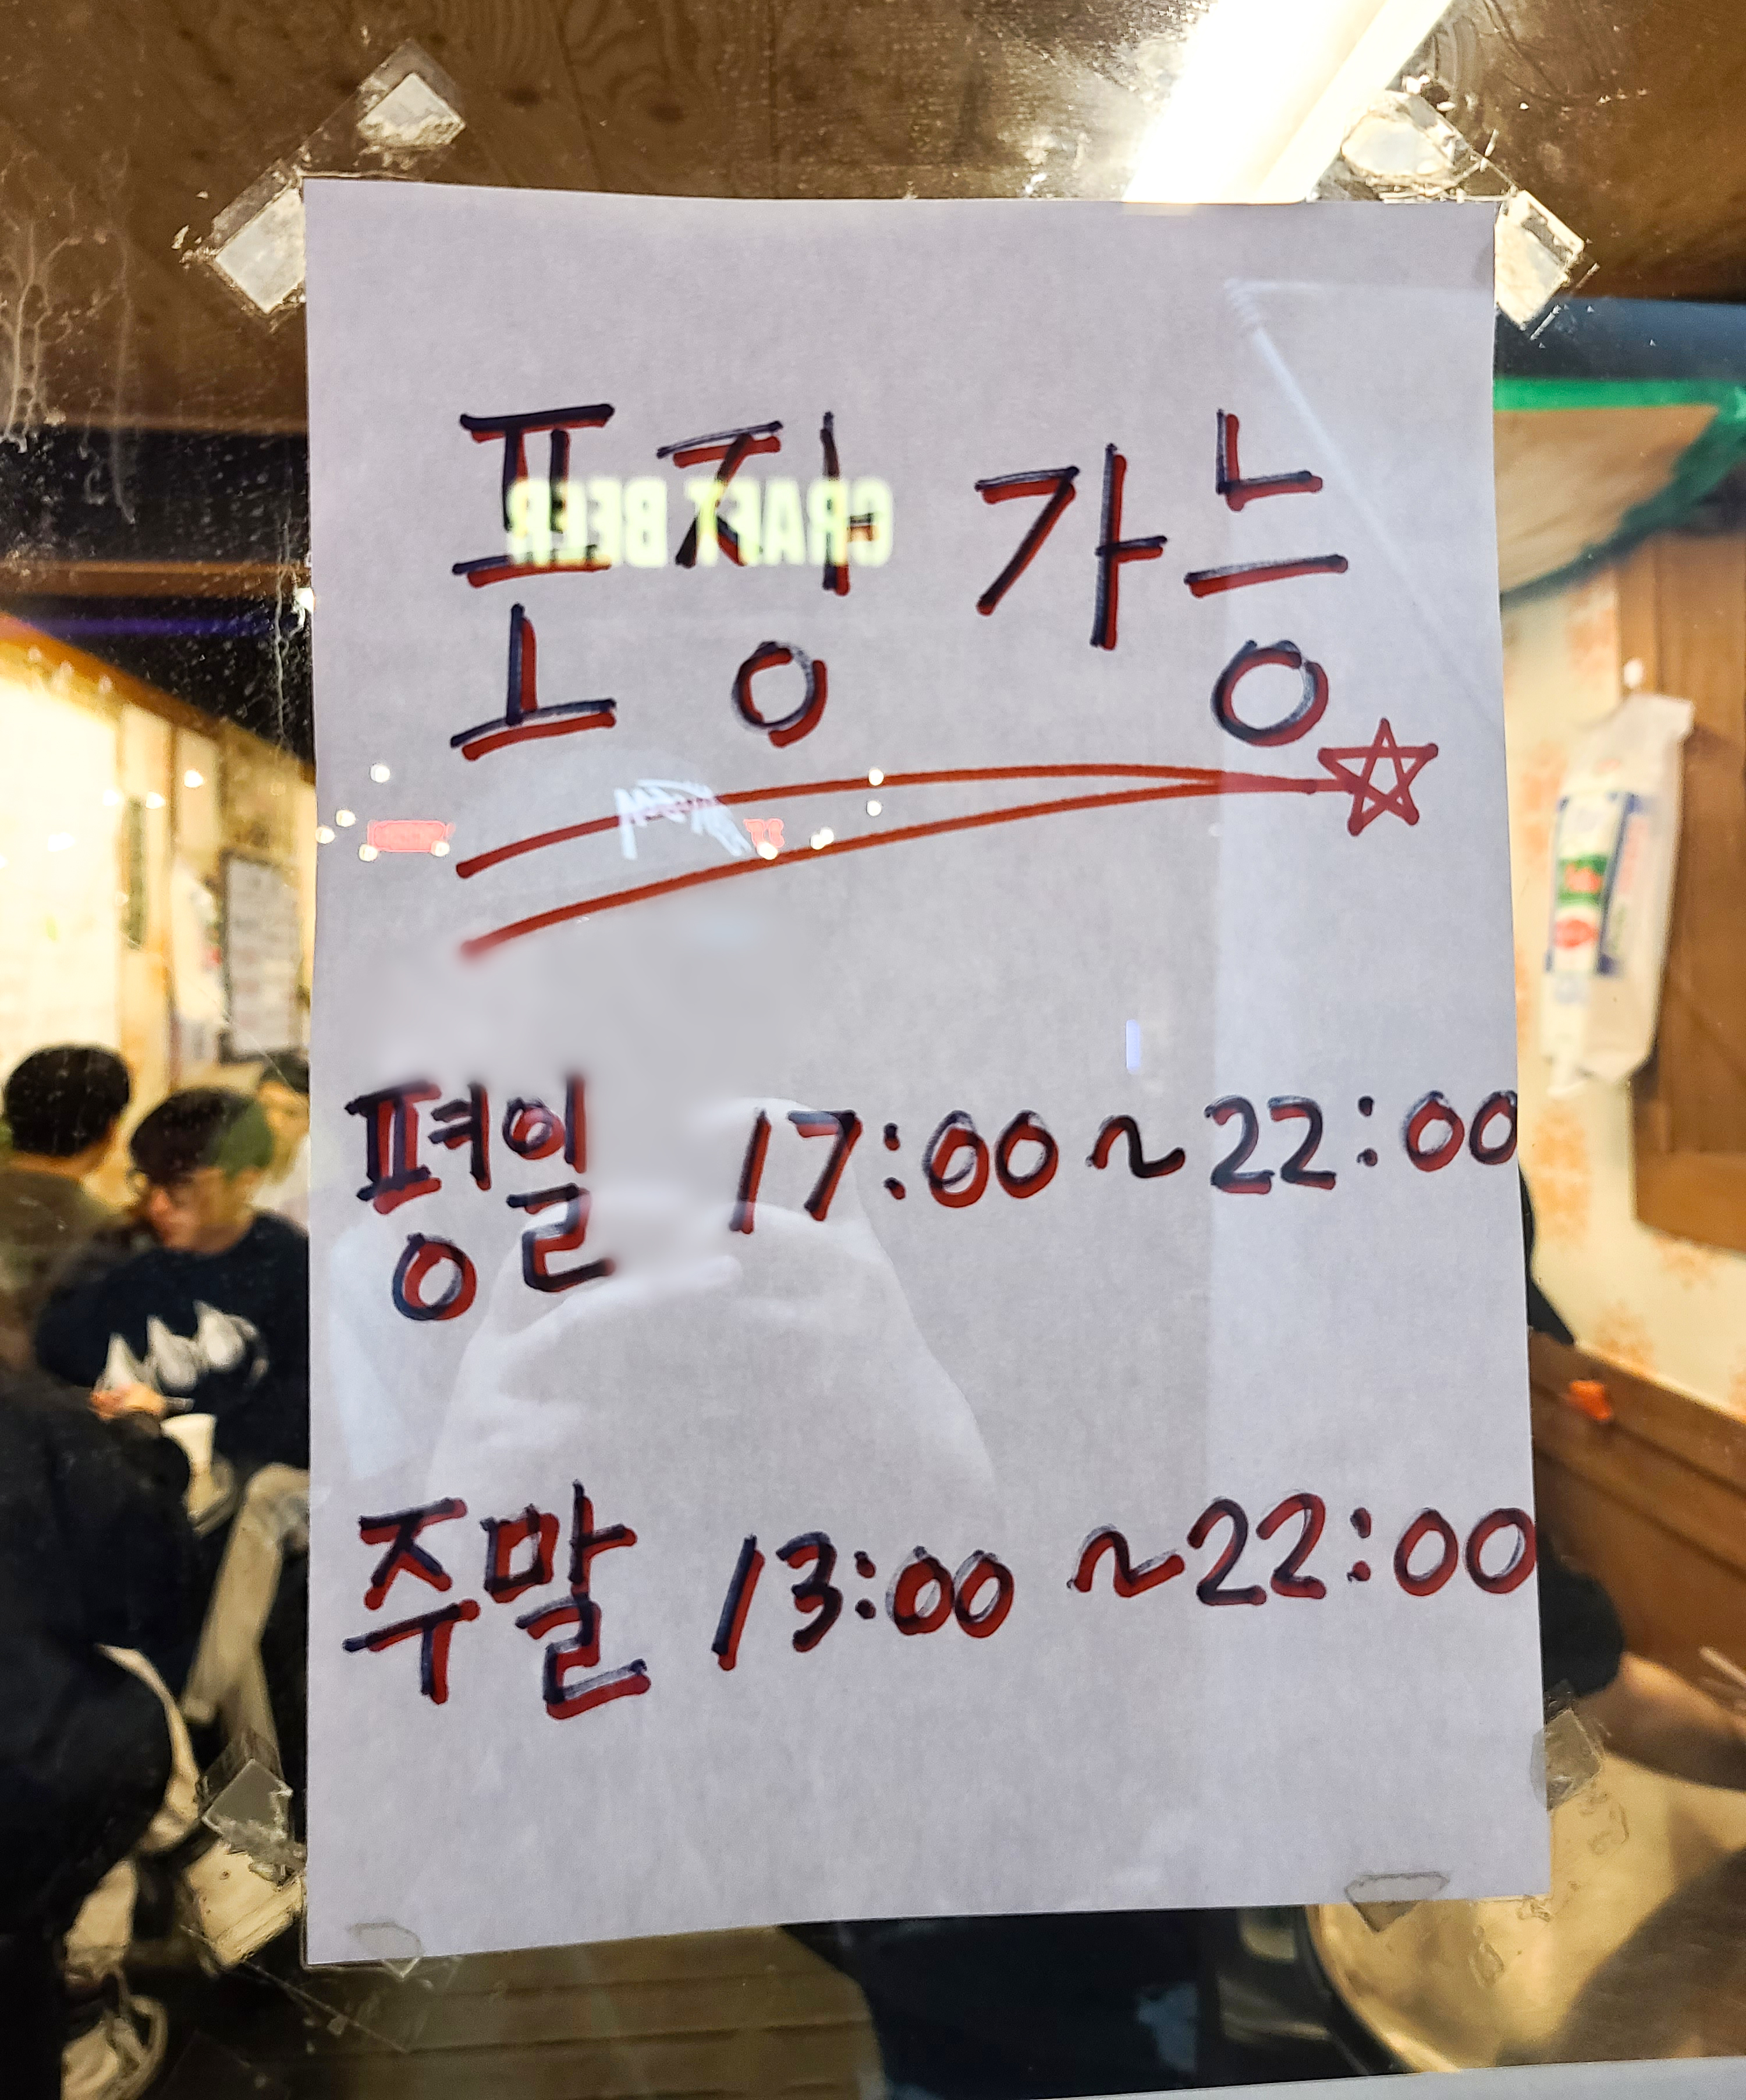 포장 가능
CRAFT BEER
평일 17:00~22:00
주말 13:00 ~22:00